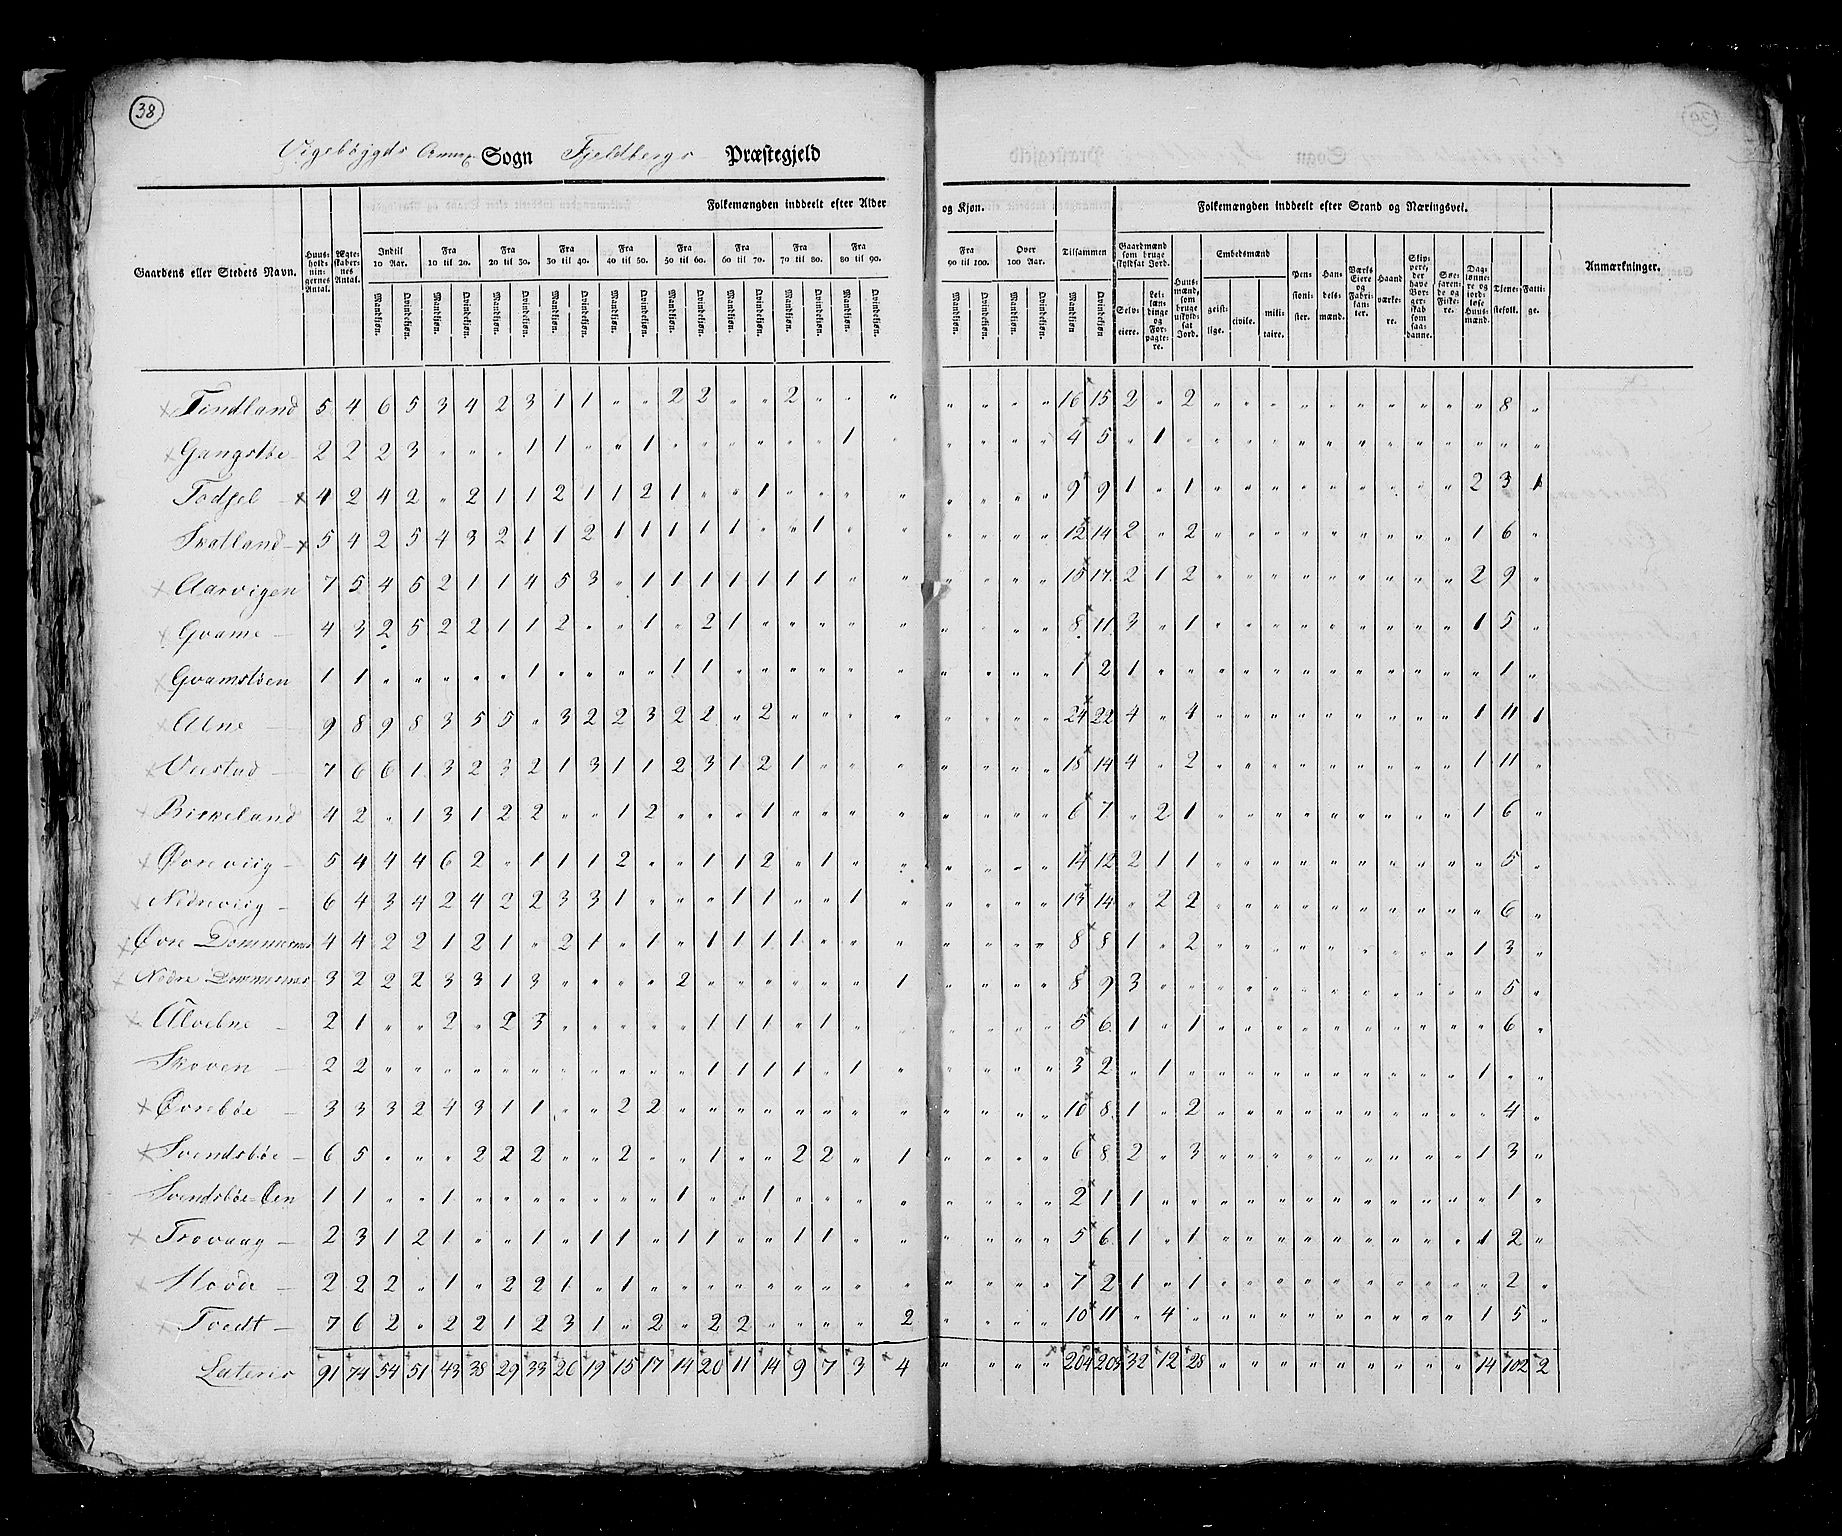 38
Vigebøygds Annex Sogn Fjeldbergs Præstegjeld
Folkemængden inddeelt efter Alder og Kjøn.
Folkemængden inddeelt efter Stand og Næringsvei.
Gaardens eller Stedets Navn. Huusholdningernes Antal. Ægteskabernes Antal. Indtil 10 Aar. Fra 10 til 20. Fra 20 til 30. Fra 30 til 40. Fra 40 til 50. Fra 50 til 60. Fra 60 til 70. Fra 70 til 80. Fra 80 til 90. Fra 90 til 100. Over 100 Aar. Tilsammen Gaardmænd som bruge skyldsat Jord. Huusmænd, som bruge uskyldsat Jord. Embedsmænd Pensionister. Handelsmænd. Værks Eiere og Fabrikanter. Haandværkere. Skippere, der have Borgerskab som saadanne. Søefarende og Fiskere. Daglønnere og jordløse Huusmænd. Tjenestefolk. Fattige. Anmærkninger.
Mandkjøn. Qvindekjøn. Mandkjøn. Qvindekjøn. Mandkjøn. Qvindekjøn. Mandkjøn. Qvindekjøn. Mandkjøn. Qvindekjøn. Mandkjøn. Qvindekjøn. Mandkjøn. Qvindekjøn. Mandkjøn. Qvindekjøn. Mandkjøn. Qvindekjøn. Mandkjøn. Qvindekjøn. Mandkjøn. Qvindekjøn. Mandkjøn Qvindekjøn. Selveiere. Leilændinge og Forpagtere. geistlige. civile. militaire.
Tindland 5 4 6 5 3 4 2 3 1 1 " " 2 2 " " 2 " " " " " " " 16 15 2 " 2 " " " " " " " " " " 8 "
Gangstøe 2 2 2 3 " " " 1 1 " " 1 " " " " " " 1 " " " " " 4 5 " 1 " " " " " " " " " " " " "
Todsel 4 2 4 2 " 2 1 1 2 1 1 2 1 " " 1 " " " " " " " " 9 9 1 " 1 " " " " " " " " " 2 3 1
Skatland 5 4 2 5 4 3 2 1 1 2 1 1 1 1 1 " " 1 " " " " " " 12 14 2 " 2 " " " " " " " " " 1 6 "
Aarvigen 7 5 4 5 2 1 1 4 5 3 " 1 1 1 1 1 1 1 " " " " " " 15 17 2 1 2 " " " " " " " " " 2 9 "
Qvame 4 3 2 5 2 2 1 1 2 " " 1 " 2 1 " " " " " " " " " 8 11 3 " 1 " " " " " " " " " 1 5 "
Qvamstøen 1 1 " " " " " 1 " " " " 1 1 " " " " " " " " " " 1 2 1 " " " " " " " " " " " " 1 "
Alne 9 8 9 8 3 5 5 " 3 2 2 3 2 2 " 2 " " " " " " " " 24 22 4 " 4 " " " " " " " " " 1 11 1
Veestad 7 6 6 1 3 2 3 2 1 3 1 1 2 3 1 2 1 " " " " " " " 18 14 4 " 2 " " " " " " " " " 1 11 "
Birkeland 4 2 " 1 3 1 2 2 " " 1 2 " " " 1 " " " " " " " " 6 7 " 2 1 " " " " " " " " " 1 6 "
Øvreviig 5 4 4 4 6 2 " 1 1 1 2 " " 1 1 2 " 1 " " " " " " 14 12 2 1 1 " " " " " " " " " " 5 "
Nedreviig 6 4 3 4 2 4 2 2 3 3 1 " " " 1 1 " " 1 " " " " " 13 14 " 2 2 " " " " " " " " " " 6 "
Øvre Dommersnes 4 4 2 2 1 2 1 " 2 1 " 1 " 1 1 1 1 " " " " " " " 8 8 1 " 2 " " " " " " " " " 1 3 "
Nedre Dommersnes 3 2 2 2 3 3 1 3 " " " " 2 " " " " " " 1 " " " " 8 9 3 " " " " " " " " " " " " 5 "
Alvebne 2 1 " " 2 " 2 3 " " " " " 1 1 1 " 1 " " " " " " 5 6 1 " 1 " " " " " " " " " " 6 "
Skoven 2 2 " " " " " " " " " " " 1 1 1 1 " 1 " " " " " 3 2 " 1 " " " " " " " " " " 1 " "
Øvrebøe 3 3 3 2 4 3 1 1 " " 2 2 " " " " " " " " " " " " 10 8 1 " 2 " " " " " " " " " " 4 "
Svendsbøe 6 5 " " " 2 2 2 " " 2 " " 1 " " 2 2 " 1 " " " " 6 8 2 " 3 " " " " " " " " " 1 3 "
Svendsbøe-Øen 1 1 " " 1 " " " " " " " 1 " " 1 " " " " " " " " 2 1 1 " " " " " " " " " " " " 1 "
Trovaag 2 3 1 2 1 " " 1 " 1 1 " 1 1 " " 1 1 " " " " " " 5 6 1 " 1 " " " " " " " " " 1 2 "
Hovde 2 2 2 " 1 " 2 2 1 " 1 " " " " " " " " " " " " " 7 2 1 " 1 " " " " " " " " " " 2 "
Tvedt 7 6 2 " 2 2 1 2 3 1 " 2 " 2 2 " " " " 2 " " " " 10 11 " 4 " " " " " " " " " " 1 5 "
Lateris 91 74 54 51 43 38 29 33 26 19 15 17 14 20 11 14 9 7 3 4 " " " " 204 203 32 12 28 " " " " " " " " " 14 102 2